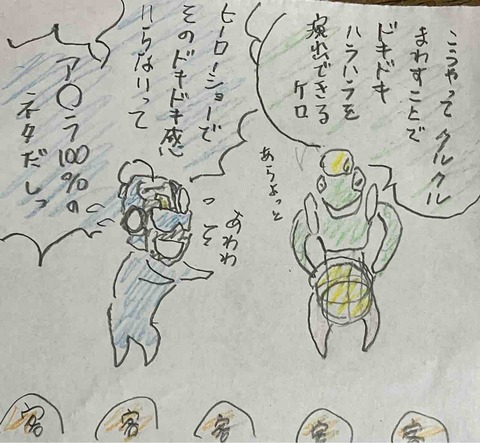 こうやってクルクル
まわすことで
ドキドキ
ハラハラを
演出できる
ケロ
あらよっと
ヒーローショーで
そのドキドキ感
いらないって
ア〇ラ100%の
ネタだしっ
あわわ
客
客
客
客
客